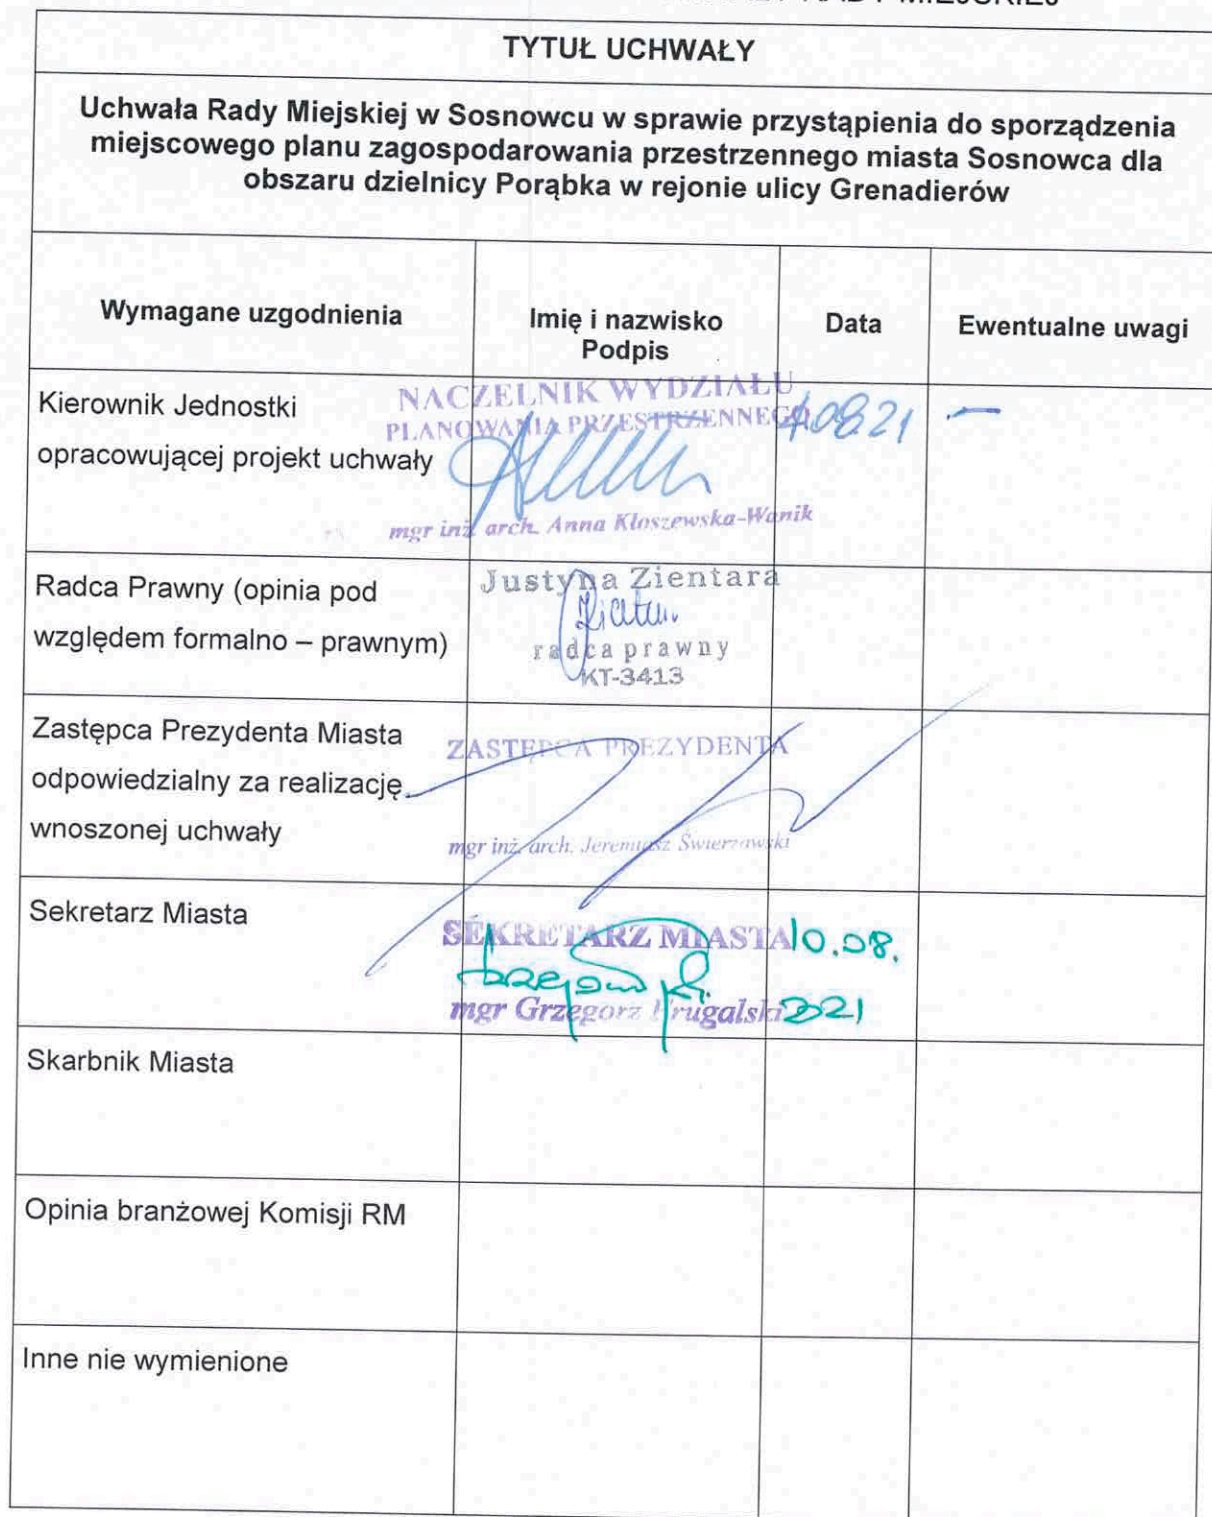 RADY MIEJSKIEJ
TYTUŁ UCHWAŁY
Uchwała Rady Miejskiej w Sosnowcu w sprawie przystąpienia do sporządzenia
miejscowego planu zagospodarowania przestrzennego miasta Sosnowca dla
obszaru dzielnicy Porąbka w rejonie ulicy Grenadierów
Wymagane uzgodnienia
Imię i nazwisko
Podpis
Data
Ewentualne uwagi
Kierownik Jednostki
opracowującej projekt uchwały
NACZELNIK WYDZIAŁU
PLANOWANIA PRZESTRZENNEGO
mgr inż. arch. Anna Kłoszewska-Wanik
Radca Prawny (opinia pod
względem formalno – prawnym)
Justyna Zientara
radca prawny
KT-3413
Zastępca Prezydenta Miasta
odpowiedzialny za realizację
wnoszonej uchwały
ZASTĘPCA PREZYDENTA
mgr inż. arch. Jeremiasz Świerzawski
Sekretarz Miasta
SEKRETARZ MIASTA
mgr Grzegorz
10.08.
2021
Skarbnik Miasta
Opinia branżowej Komisji RM
Inne nie wymienione